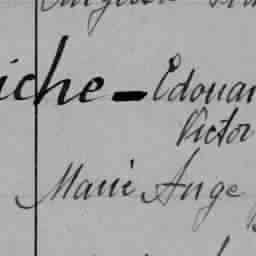 iche - Edouar
Victor
Marie Ange